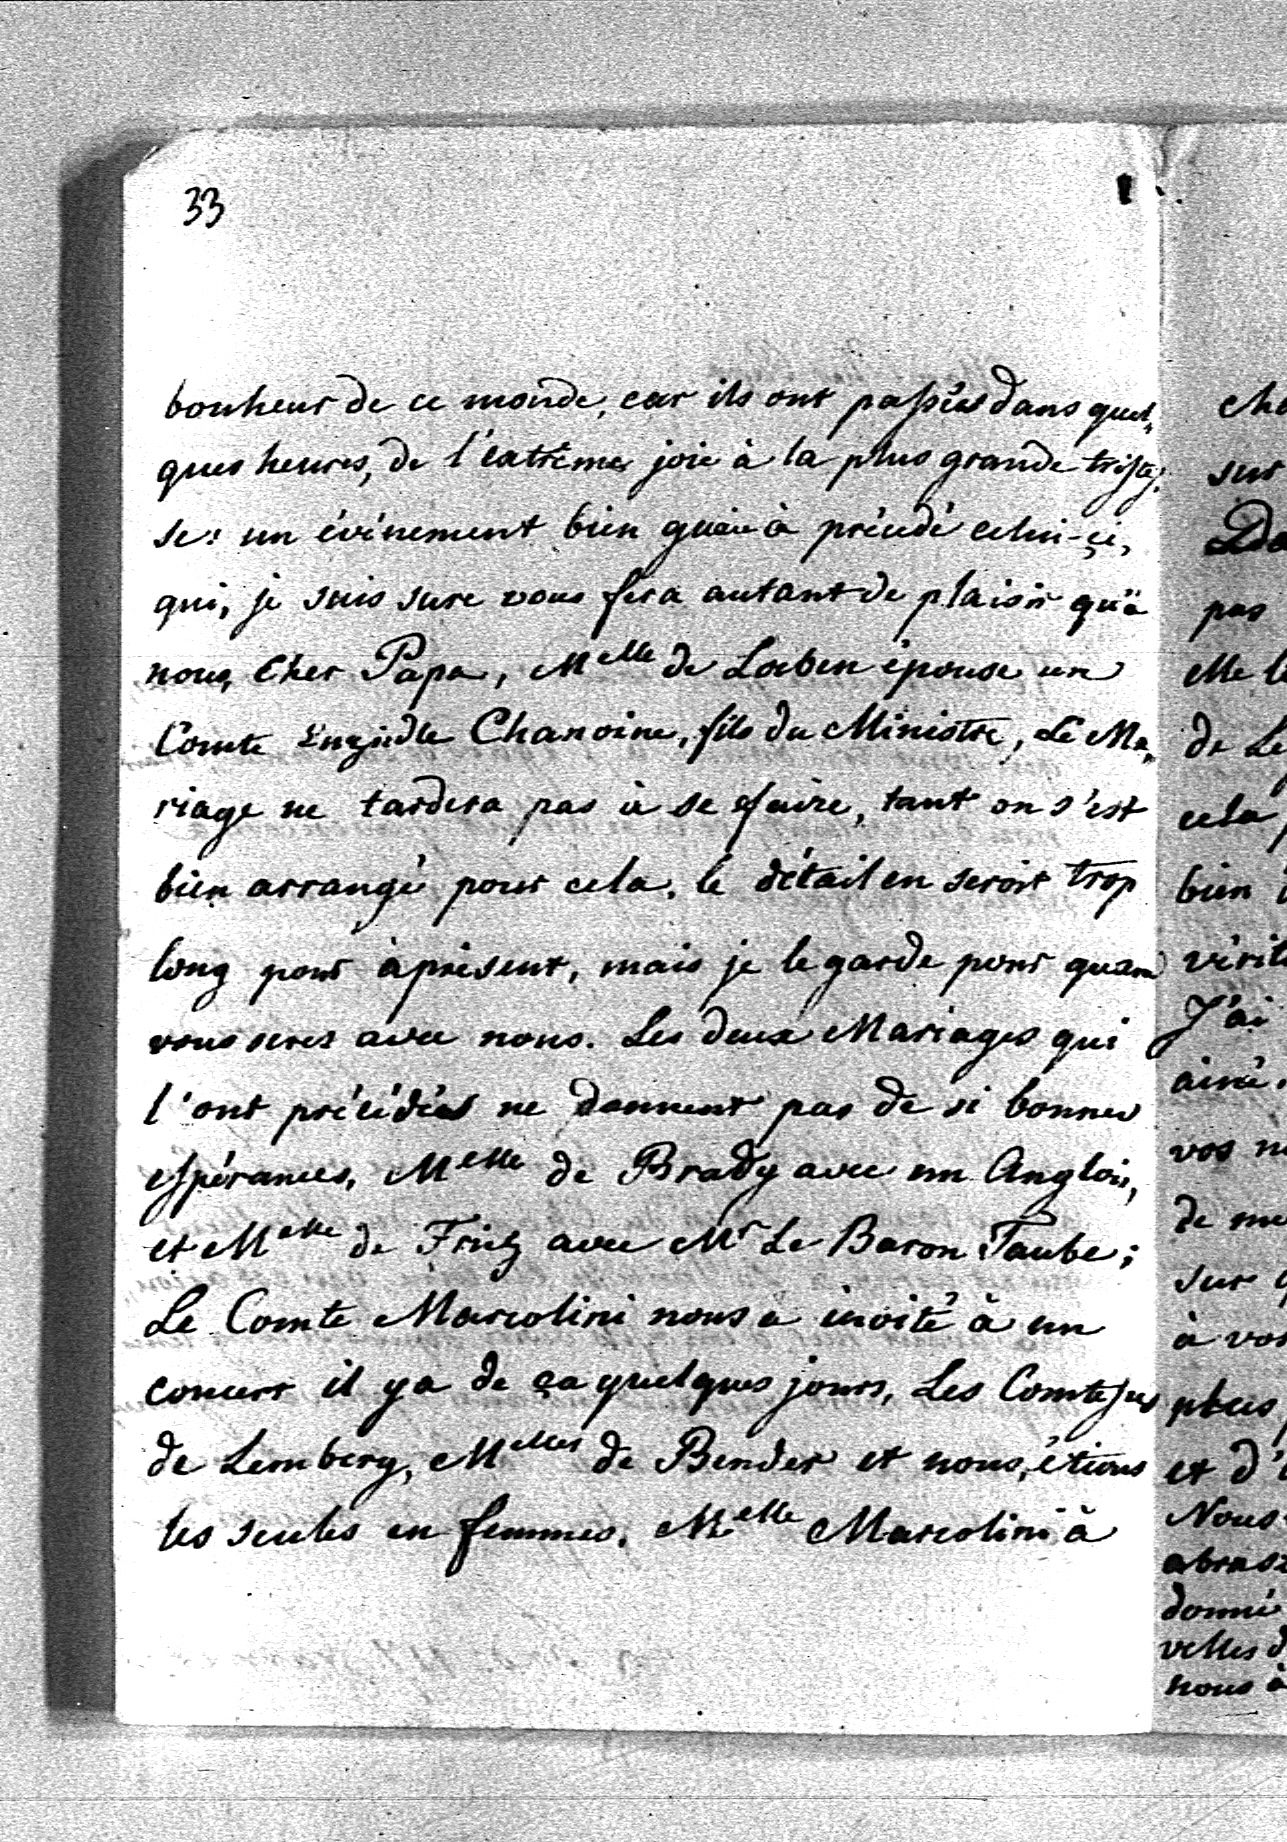 33
bonheur de ce monde, car ils ont passées dans quel,,
ques heures, de l'extrêmes joie à la plus grande tristes,
se! un événement bien à précédé celui-çi,
qui, je suis sure vous fera autant de plaisir qu'à
nous, Cher Papa, Melle de Loeben épouse un
Comte Chanoine, fils du Ministre, Le Ma,,
riage ne tardera pas à se faire, tant on s'est
bien arrangé pour cela, le détail en seroit trop
long pour àprésent, mais je le garde pour quand
vous seres avec nous. Les deux Mariages qui
l'ont précédées ne donnent pas de si bonnes
espérances, Melle de Brady avec un Anglois,
et Melle de avec Mr Le Baron Taube;
Le Comte Marcolini nous a invité à un
concert il ya de ça quelques jours, Les Comtesses
de Lemberg, Melles de Bender et nous, étions
les seules en femmes. Melle Marcolini à
cho
sur
pas
elle
de Le
cela
bien
vérité
J'ai
ainé
vos
de
sur
à vo
plus
et d'
Nous
donné
velles d
nous à